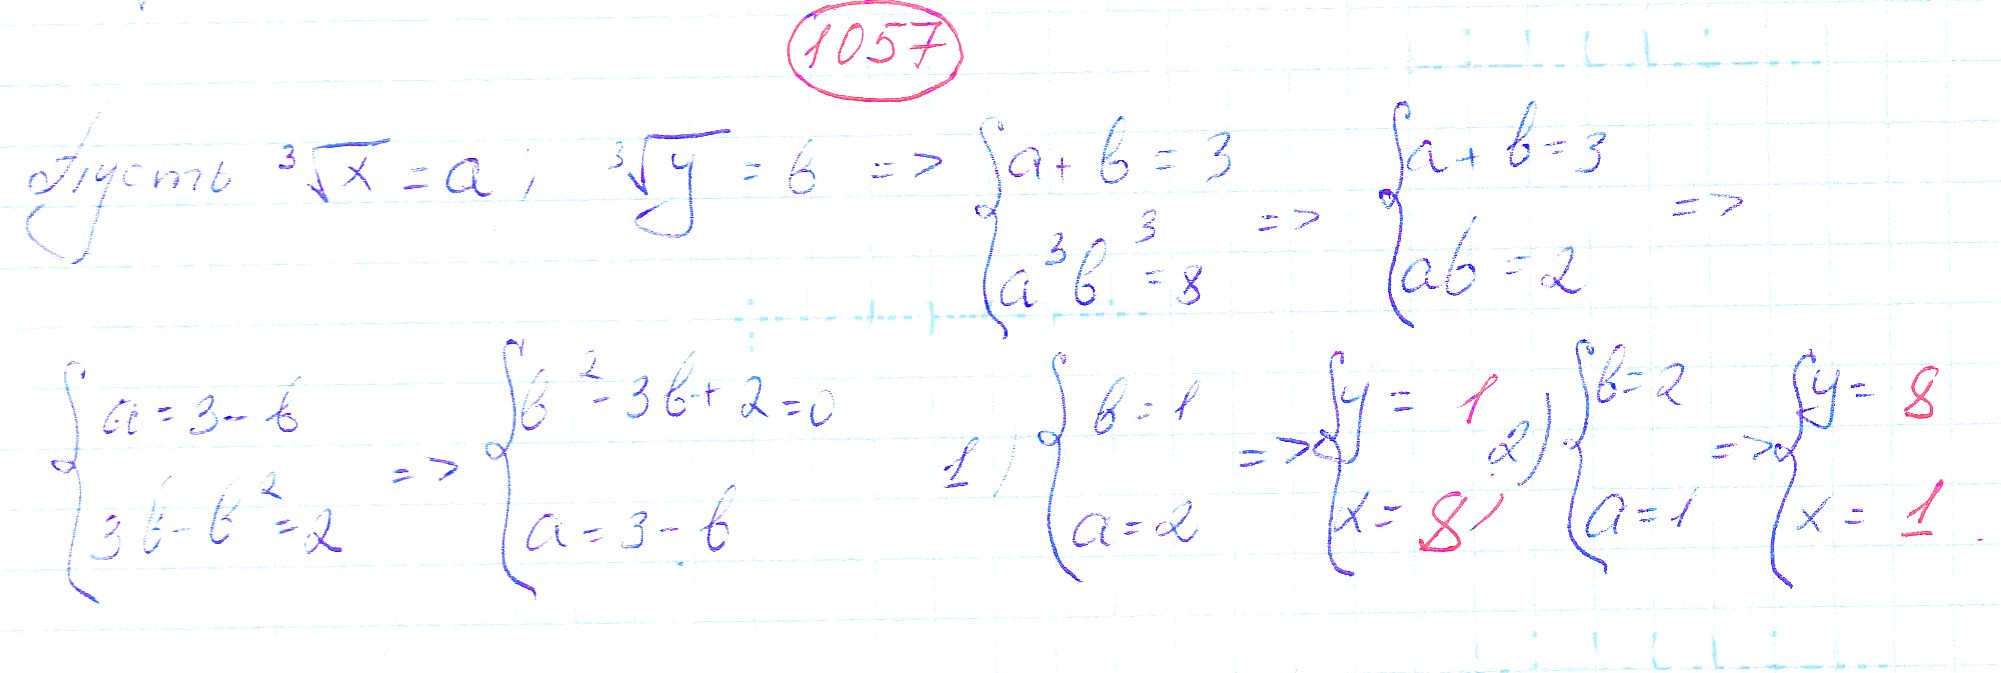 1057
Пусть ∛x = a; ∛y = b => { a + b = 3 ; a³b³ = 8 => { a + b = 3 ; ab = 2 =>
{ a = 3 - b ; 3b - b² = 2 => { b² - 3b + 2 = 0 ; a = 3 - b 1) { b = 1 ; a = 2 => { y = 1 ; x = 8; 2) { b = 2 ; a = 1 => { y = 8 ; x = 1.